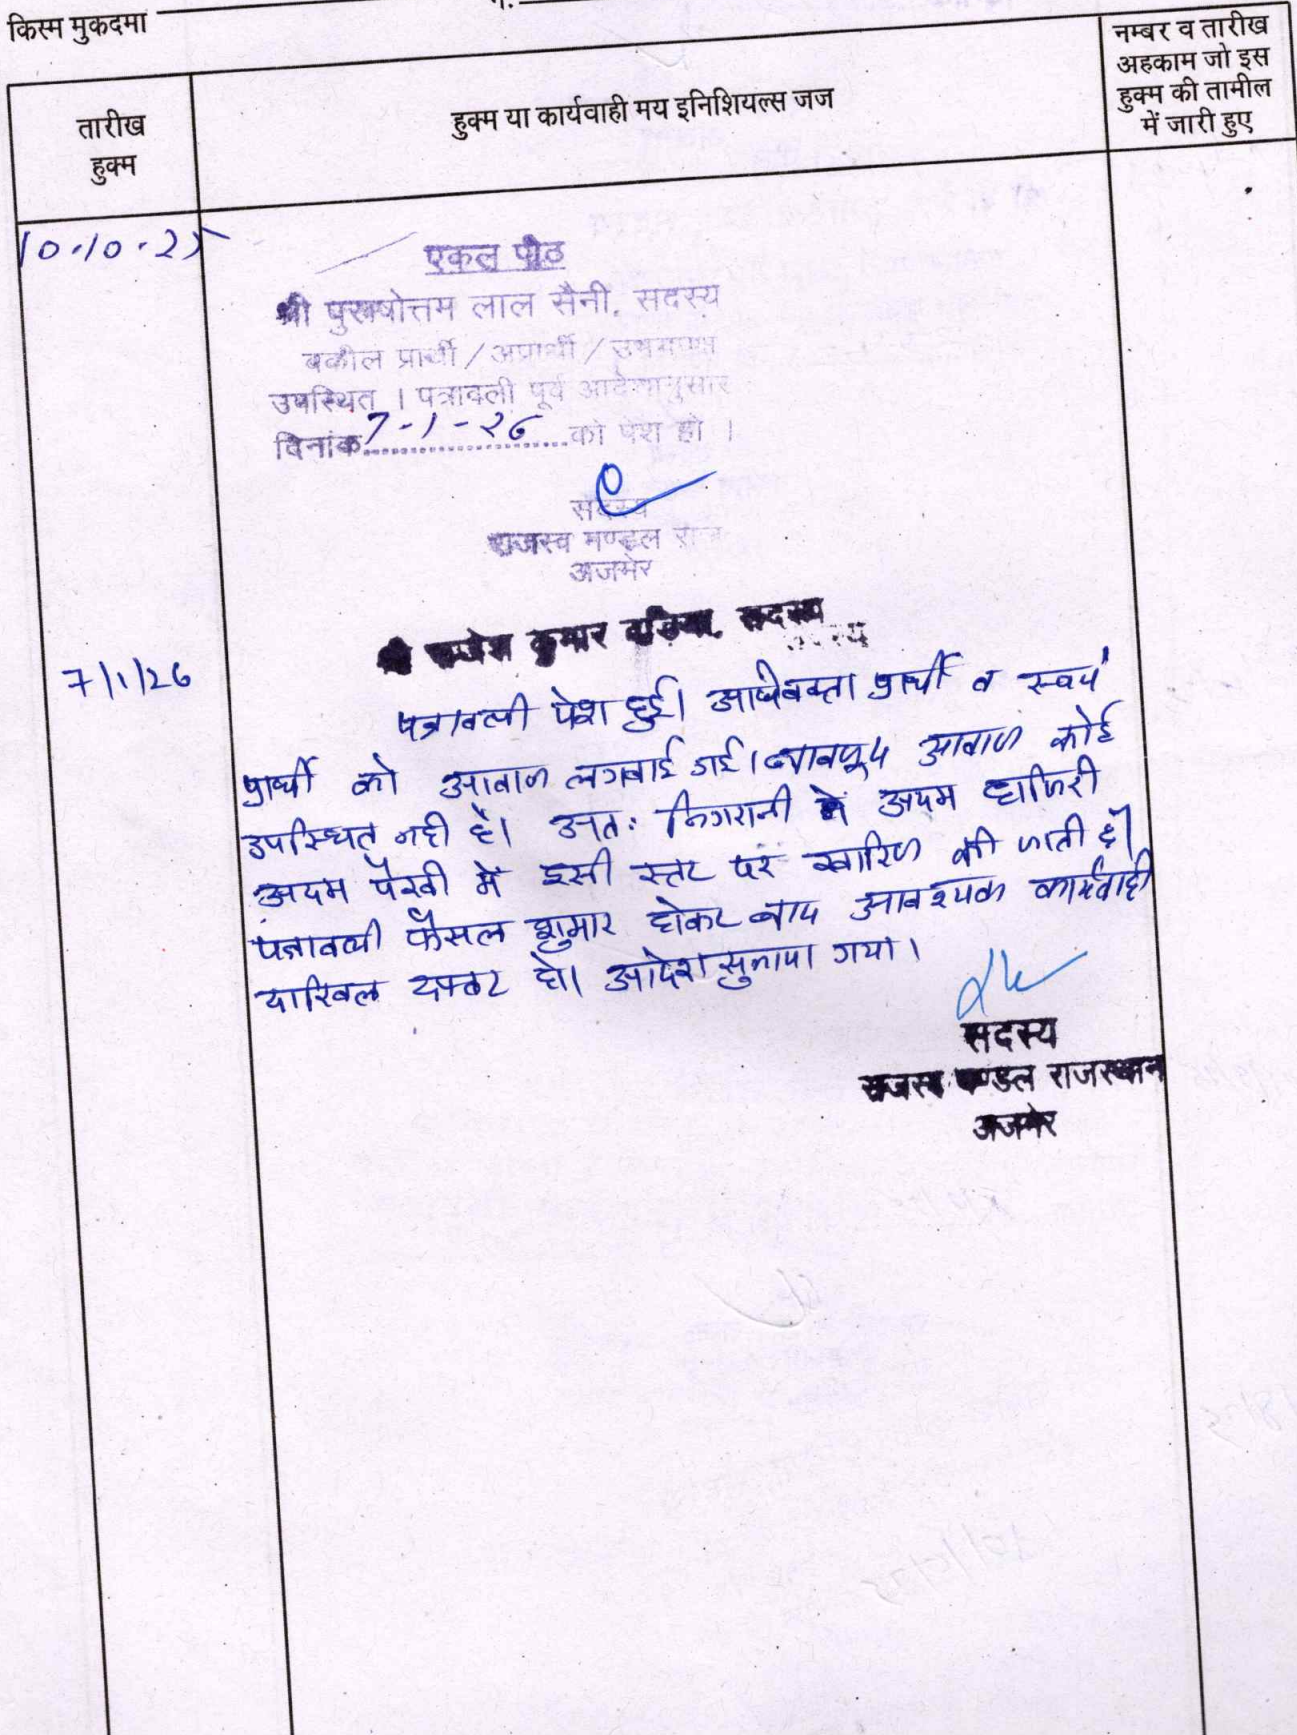 किस्म मुकदमा
तारीख
हुक्म
हुक्म या कार्यवाही मय इनिशियल्स जज
नम्बर व तारीख
अहकाम जो इस
हुक्म की तामील
में जारी हुए
10.10.25
एकल पीठ
श्री पुरूषोत्तम लाल सैनी, सदस्य
वकील प्रार्थी / अप्रार्थी / उभयपक्ष
उपस्थित । पत्रावली पूर्व आदेशानुसार
दिनांक 7-1-26 को पेश हो ।
सदस्य
राजस्व मण्डल राज
अजमेर
7/1/26
कुमार सदस्य
पत्रावली पेश हुई। अधिवक्ता प्रार्थी व स्वयं
प्रार्थी को आवाज लगवाई गई। बावजूद आवाज कोई
उपस्थित नही है। अतः निगरानी अदम हाजिरी
अदम पैरवी में इसी स्तर पर खारिज की जाती है।
पत्रावली फैसल शुमार होकर बाद आवश्यक कार्यवाही
दाखिल दफ्तर हो। आदेश सुनाया गया।
सदस्य
राजस्व मण्डल राजस्थान
अजमेर